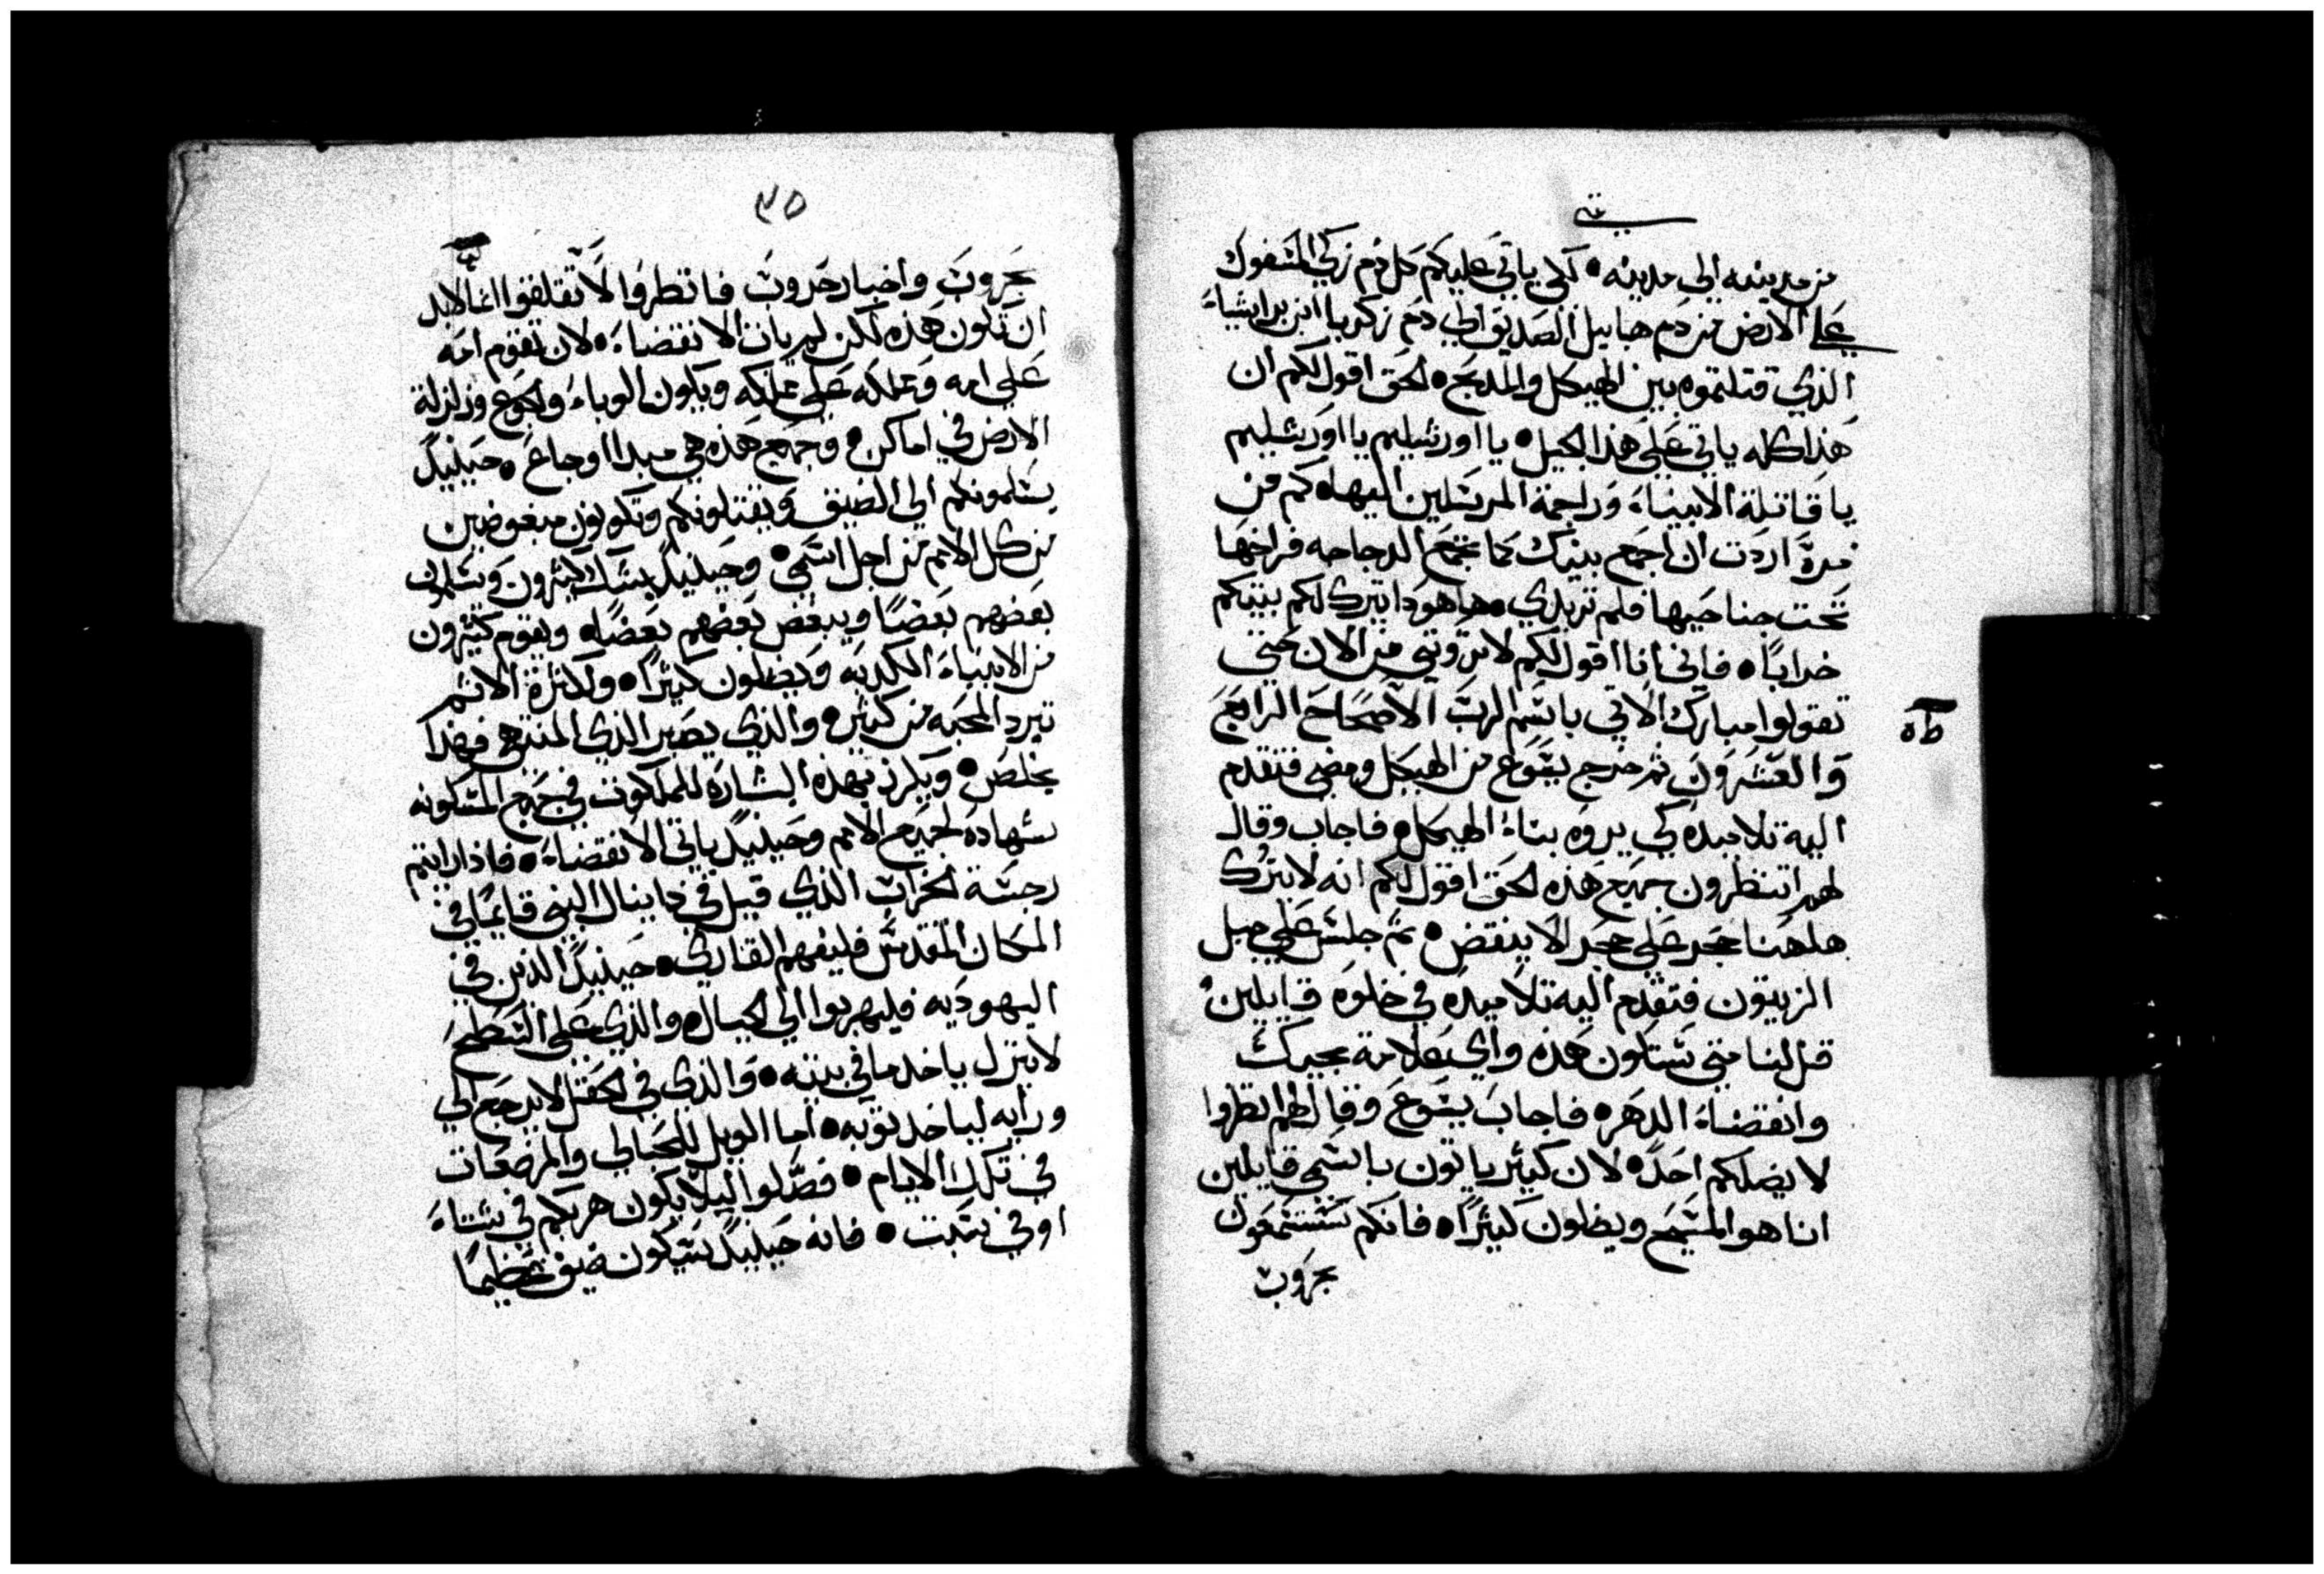 متى
من مدينه الى مدينه • لكي ياتي عليكم كل دم زكي المسفوك
على الارض من دم هابيل الصديق الى دم زكريا ابن براشياءَ
الذي قتلتموه بين الهيكل والمدبح • الحق اقول لكم ان
هذا كله ياتي على هذا الجيل • يا اورشليم يا اورشليم
يا قاتلة الانبياءَ وراجمة المرسلين اليها • كم من
مرة اردت ان اجمع بينك كما تجمع الدجاجه فراخها
تحت جناحيها فلم تريدي • ها هودا يترك لكم بيتكم
خرابًا • فاني انا اقول لكم لا تروني من الان حتي
تقولوا مبارك الاتي باسم الرب الاصحاح الرابع
والعشرون ثم خرج يسوع من الهيكل ومضي فتقدم
اليه تلاميده كي يروه بناءُ الهيكل • فاجاب وقال
لهم اتنظرون جميع هذه الحق اقول لكم انه لا يترك
هاهنا حجر على حجر الا ينقض • ثم جلس على جبل
الزيتون فتقدم اليه تلاميده في خلوه قايلين
قل لنا متي ستكون هذه واي علامة مجيك
وانقضاءَ الدهر • فاجاب يسوع وقال لهم انظروا
لا يضلكم احدٌ • لان كثير ياتون باسمي قايلين
انا هو المسيح ويضلون كثيرًا • فانكم ستسمعون
بحروب
٣٥
بحروب واخبار حروب فانظروا لا تقلقوا انما لابد
ان تكون هذه لكن لم يات الانقضاءَ • لان تقوم امه
على امه ومملكه على مملكه ويكون الوباءَ والجوع وزلزلة
الارض في اماكن • وجميع هذه هي مبدا اوجاع • حينيدٍ
يسلمونكم الى الضيق ويقتلونكم وتكونون مبغوضين
من كل الامم من اجل اسمي • وحينيدٍ يشك كثيرون ويسلمون
بعضهم بعضًا ويبغض بعضهم بعضًا • ويقوم كثيرون
من الانبياءَ الكدبه ويضلون كثيرًا • ولكثرة الاثم
تبرد المحبه من كثير • والذي يصبر الى المنتهي فهذا
يخلص • ويكرز بهذه البشاره للملكوت في جميع المسكونه
شهادةً لجميع الامم وحينيدٍ ياتي الانقضاءَ • فاذا رايتم
رجسة الخراب الذي قيل في دانيال النبي قايمًا في
المكان المقدس فليفهم القاري • حينيدٍ الذين في
اليهوديه فليهربوا الى الجبال • والذي على السطح
لا ينزل ياخد ما في بيته • والذي في الحقل لا يرجع الى
ورايه لياخد ثوبه • اما الويل للحبالي والمرضعات
في تلك الايام • فصلوا ليلا يكون هربكم في شتاءَ
او في سبت • فانه حينيدٍ سيكون ضيق عظيمًا